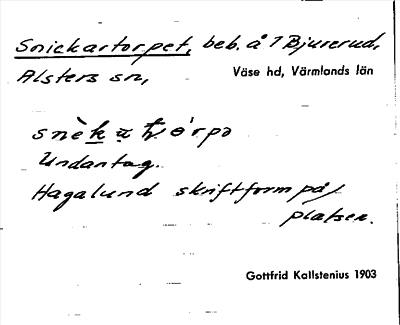 Snickartorpet, beb. å 1 Bjurerud,
Alsters sn,
Väse hd, Värmlands län
snèkaṭórpə
Undantag.
Hagalund skriftform på
platsen.
Gottfrid Kallstenius 1903